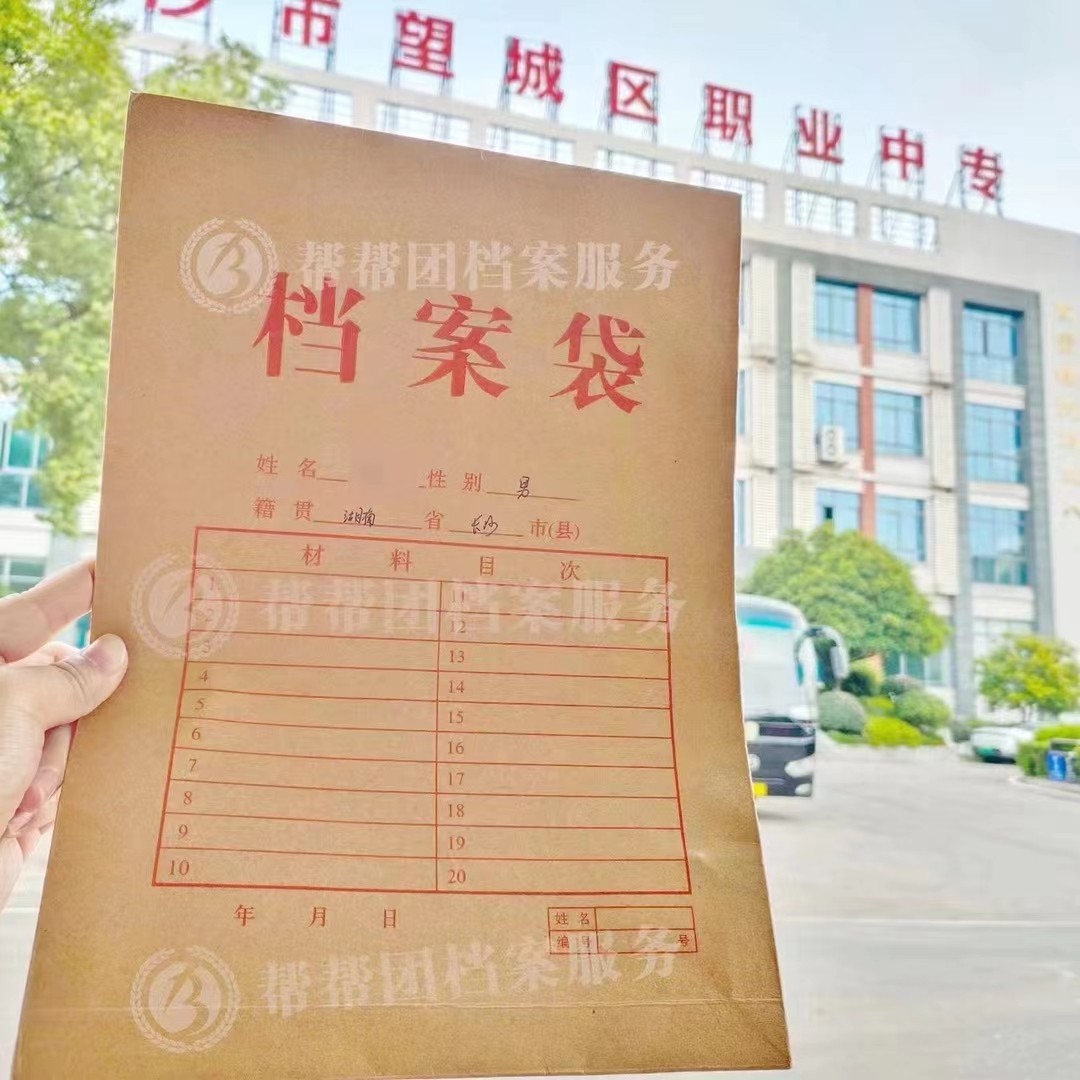 沙市望城区职业中专
帮帮团档案服务
档案袋
姓名 性别 男
籍贯 湖南 省 长沙 市(县)
材料目次
1 11
2 12
3 13
4 14
5 15
6 16
7 17
8 18
9 19
10 20
帮帮团档案服务
年 月 日
姓名
编号 号
帮帮团档案服务